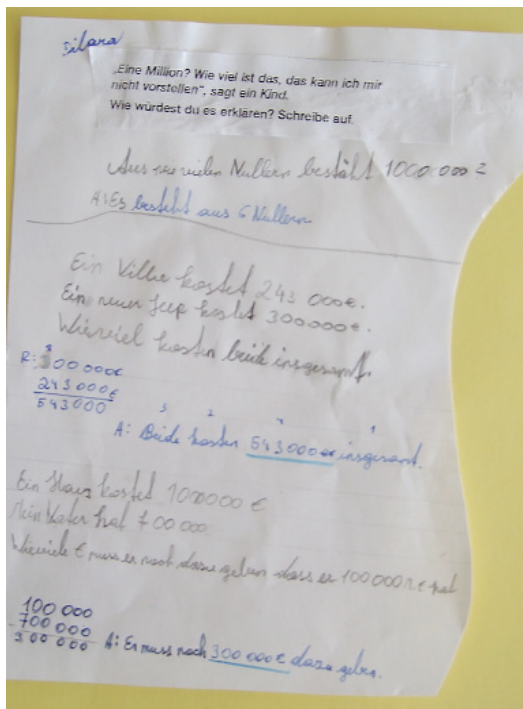 Dilara
„Eine Million? Wie viel ist das, das kann ich mir
nicht vorstellen“, sagt ein Kind.
Wie würdest du es erklären? Schreibe auf.
Aus wie vielen Nullern besteht 1000000?
A: Es besteht aus 6 Nullern
Ein Villa kostet 243 000€.
Ein neuer Jeep kostet 300000€.
Wieviel kosten beide insgesamt.
R: 300 000€
243 000€
543 000
A: Beide kosten 543 000€ insgesamt.
Ein Haus kostet 1000000 €
Mein Vater hat 700 000
Wieviele € muss er noch dazu geben dass er € hat
100 000
- 700 000
300 000 A: Er muss noch 300 000€ dazu geben.